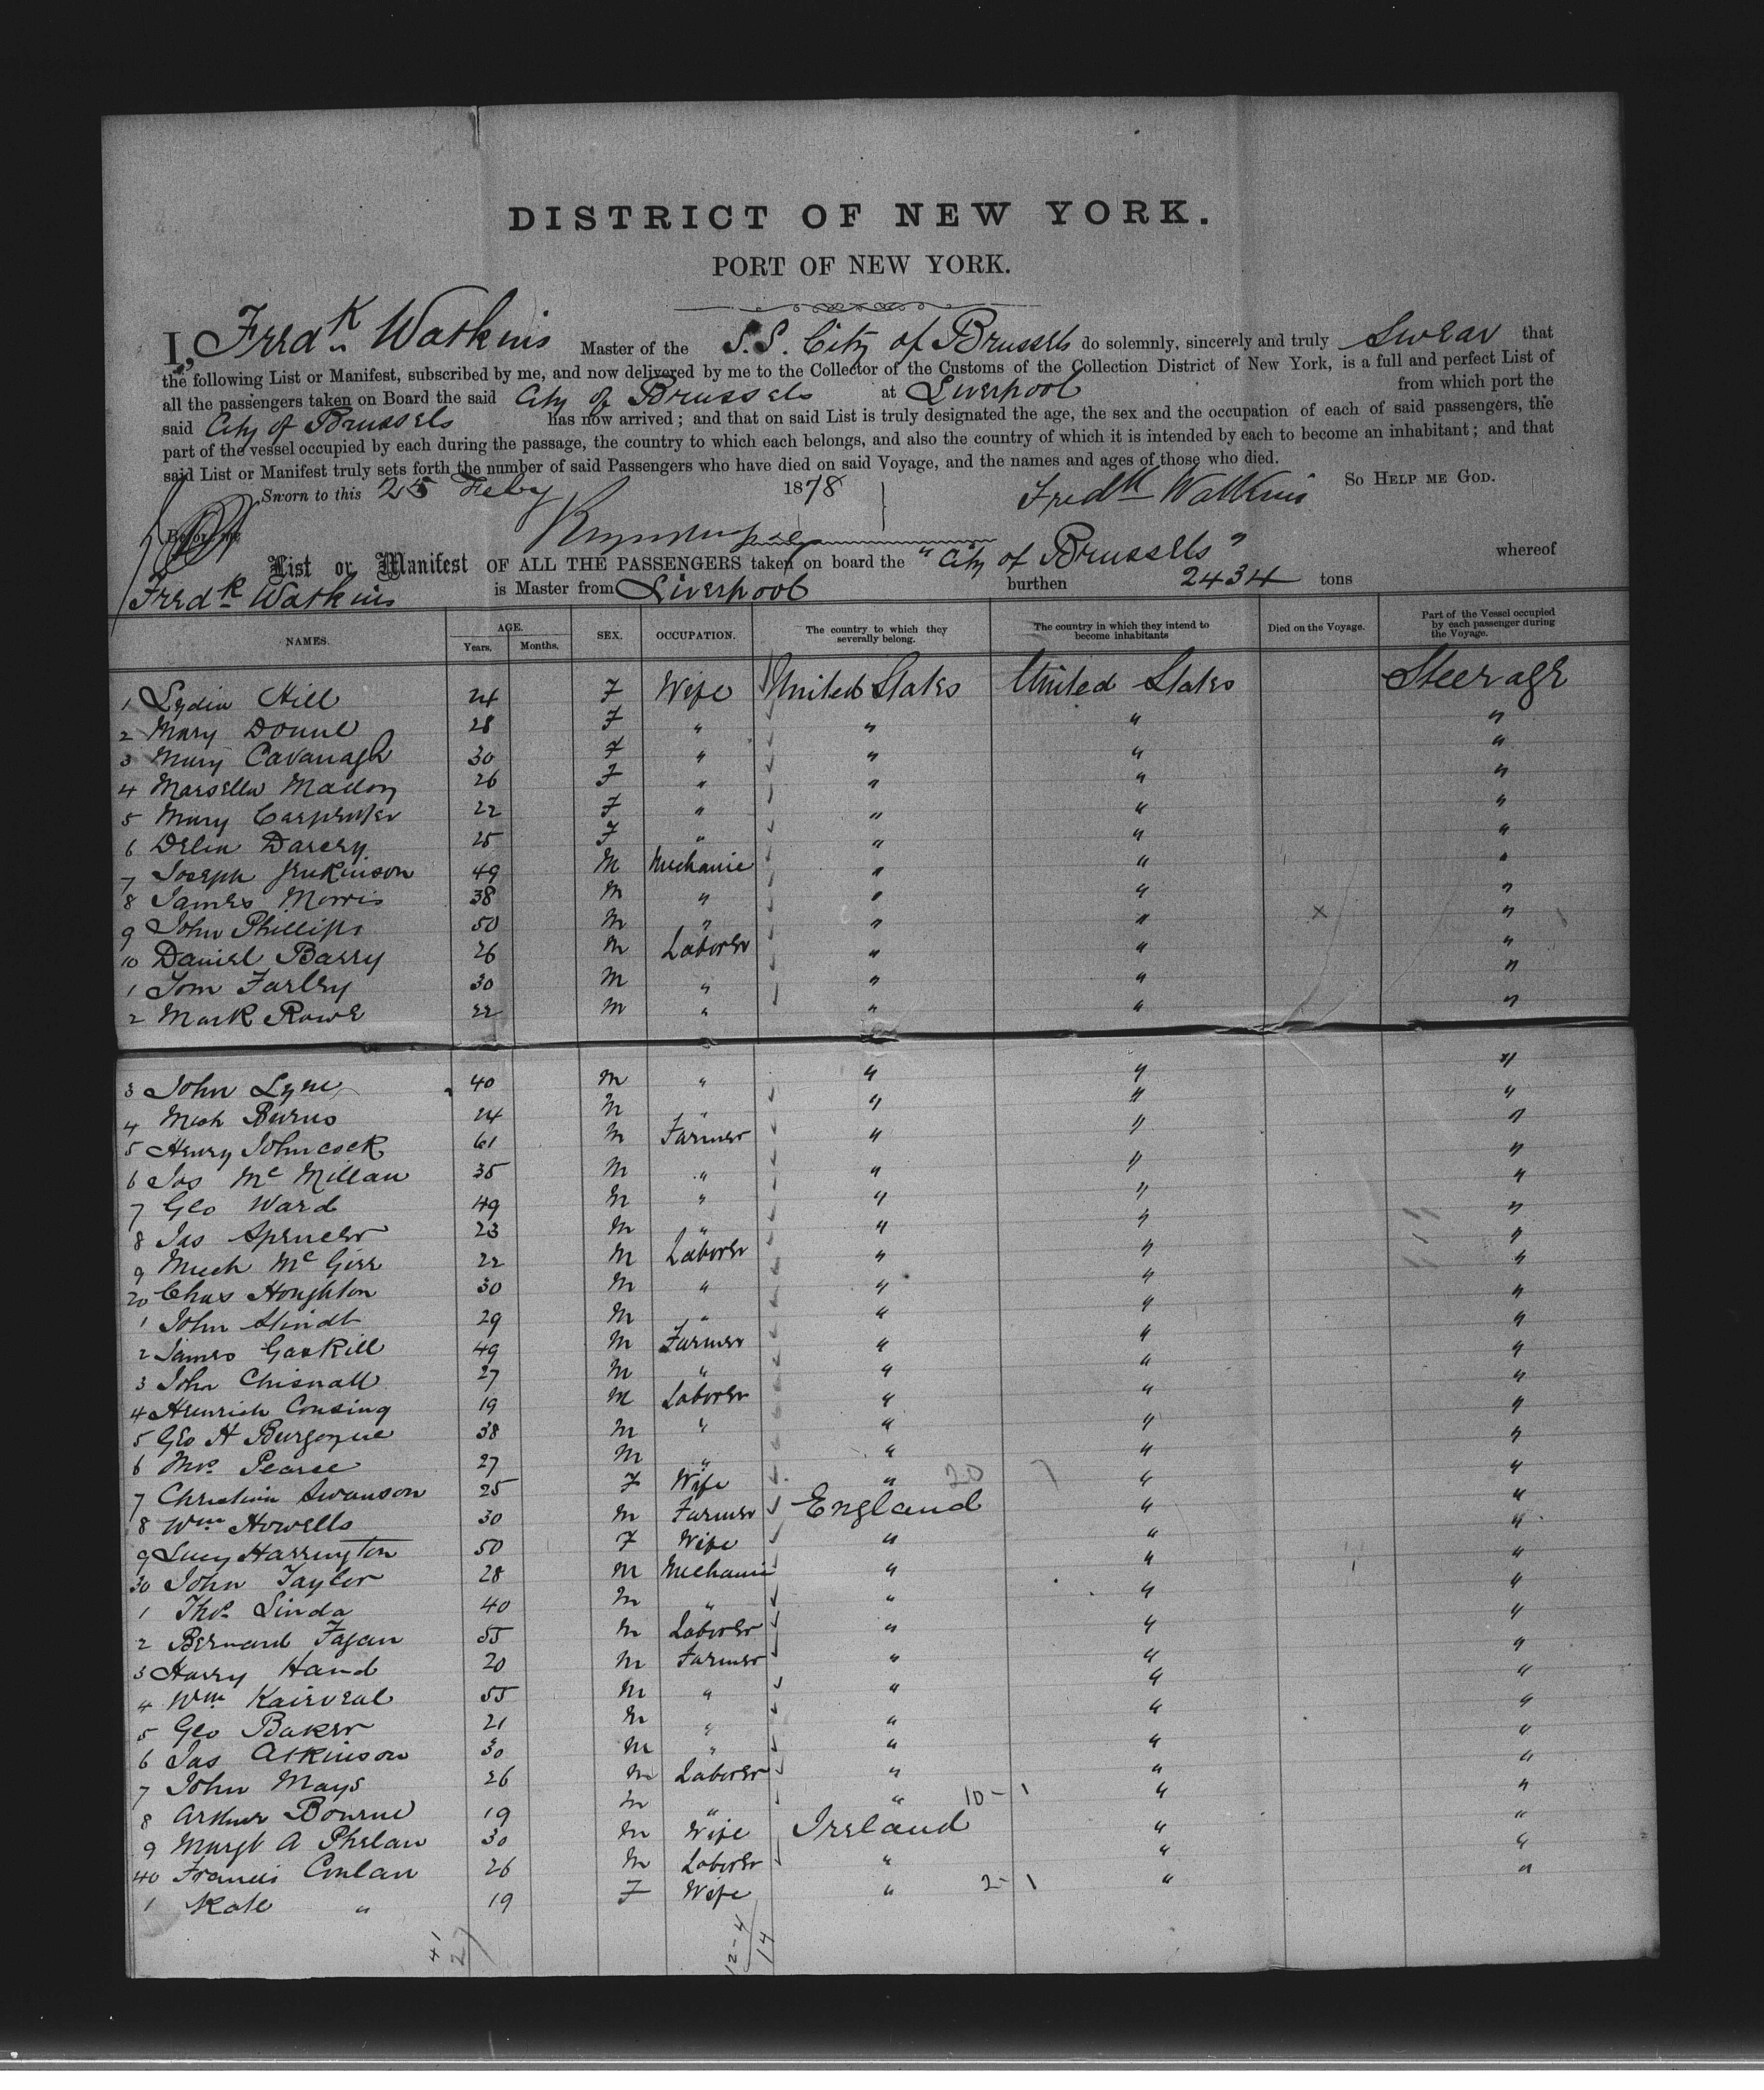 DISTRICT OF NEW YORK.
PORT OF NEW YORK.
I, Fredk Watkins Master of the S.S. City of Brussels do solemnly, sincerely and truly Swear that
the following List or Manifest, subscribed by me, and now delivered by me to the Collector of the Customs of the Collection District of New York, is a full and perfect List of
all the passengers taken on Board the said City of Brussels at Liverpool from which port the
said City of Brussels has now arrived; and that on said List is truly designated the age, the sex and the occupation of each of said passengers, the
part of the vessel occupied by each during the passage, the country to which each belongs, and also the country of which it is intended by each to become an inhabitant; and that
said List or Manifest truly sets forth the number of said Passengers who have died on said Voyage, and the names and ages of those who died.
Sworn to this 25 Feby 1878 Fredk Watkins So HELP ME GOD.
Before me
List or Manifest OF ALL THE PASSENGERS taken on board the "City of Brussels" whereof
Fredk Watkins is Master from Liverpool burthen 2434 tons
NAMES. AGE. Years. Months. SEX. OCCUPATION. The country to which they severally belong. The country in which they intend to become inhabitants Died on the Voyage. Part of the Vessel occupied by each passenger during the Voyage.
1 Lydia Hill 24 F Wife United States United States Steerage
2 Mary 28 F " " " "
3 Mary Cavanagh 30 F " " " "
4 26 F " " " "
5 Mary Carpenter 22 F " " " "
6 Delia Darcey 25 F " " " "
7 Joseph Jenkinson 49 M Mechanic " " "
8 James Morris 38 M " " " "
9 John Phillips 50 M " " " x "
10 Daniel Barry 26 M Laborer " " "
1 Tom Farley 30 M " " " "
2 Mark Rowe 22 M " " " "
3 John Lyne 40 M " " " "
4 Mich Burns 24 M " " " "
5 Henry Johncock 61 M Farmer " " "
6 Jas Mc Millan 35 M " " " "
7 Geo Ward 49 M " " " "
8 Jas Spencer 23 M " " " "
9 Mc Girr 22 M Laborer " " "
20 Chas Houghton 30 M " " " "
1 John Stindt 29 M " " " "
2 James Gaskill 49 M Farmer " " "
3 John Chisnall 27 M " " " "
4 Heinrich 19 M Laborer " " "
5 Geo H Burgoyne 38 M " " " "
6 Pearce 27 M " " " "
7 Christina Swanson 25 F Wife " 20 7 " "
8 Wm Howells 30 M Farmer England " "
9 Lucy Harrington 50 F Wife " " "
30 John Taylor 28 M Mechanic " " "
1 Thos Linda 40 M " " " "
2 Bernard Fagan 55 M Laborer " " "
3 Harry Hand 20 M Farmer " " "
4 Wm 55 M " " " "
5 Geo Baker 21 M " " " "
6 Jas Atkinson 30 M " " " "
7 John Mays 26 M Laborer " " "
8 Arthur Bourne 19 M " " 10-1 " "
9 Margt A Phelan 30 M Wife Ireland " "
40 Francis Conlan 26 M Laborer " " "
1 Kate " 19 F Wife " 2-1 " "
41
27
12-4
14